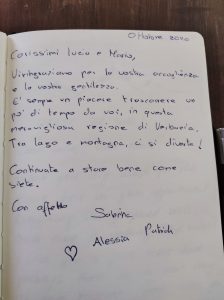 Ottobre 2020
Carissimi Luca e Maria,
Vi ringraziamo per la vostra accoglienza
e la vostra gentilezza.
E' sempre un piacere trascorrere un
po' di tempo da voi, in questa
meravigliosa regione di Verbania.
Tra lago e montagna, ci si diverte!
Continuate a stare bene come
siete.
Con affetto
Sabrina
Patrick
Alessia